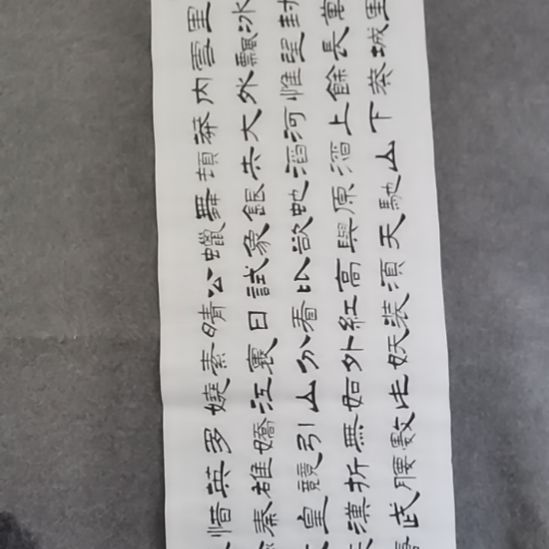 里冰封萬里
雪飄望長城
內外惟餘莽
莽大河上下
頓失滔滔山
舞銀蛇原馳
蠟象欲與天
公試比高須
晴日看紅裝
素裹分外妖
嬈江山如此
多嬌引無數
英雄競折腰
惜秦皇漢武